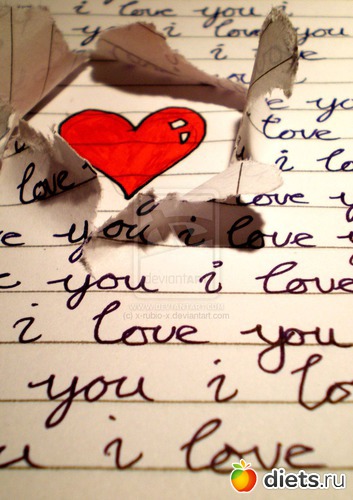 i love you i
love you
i love you
i
e you
love
i lo
love
i love you
e you i love y
e you i love
deviantART
WWW.DEVIANTART.COM
(c) x-rubio-x.deviantart.com
i love you
you i lo
u i love
diets.ru